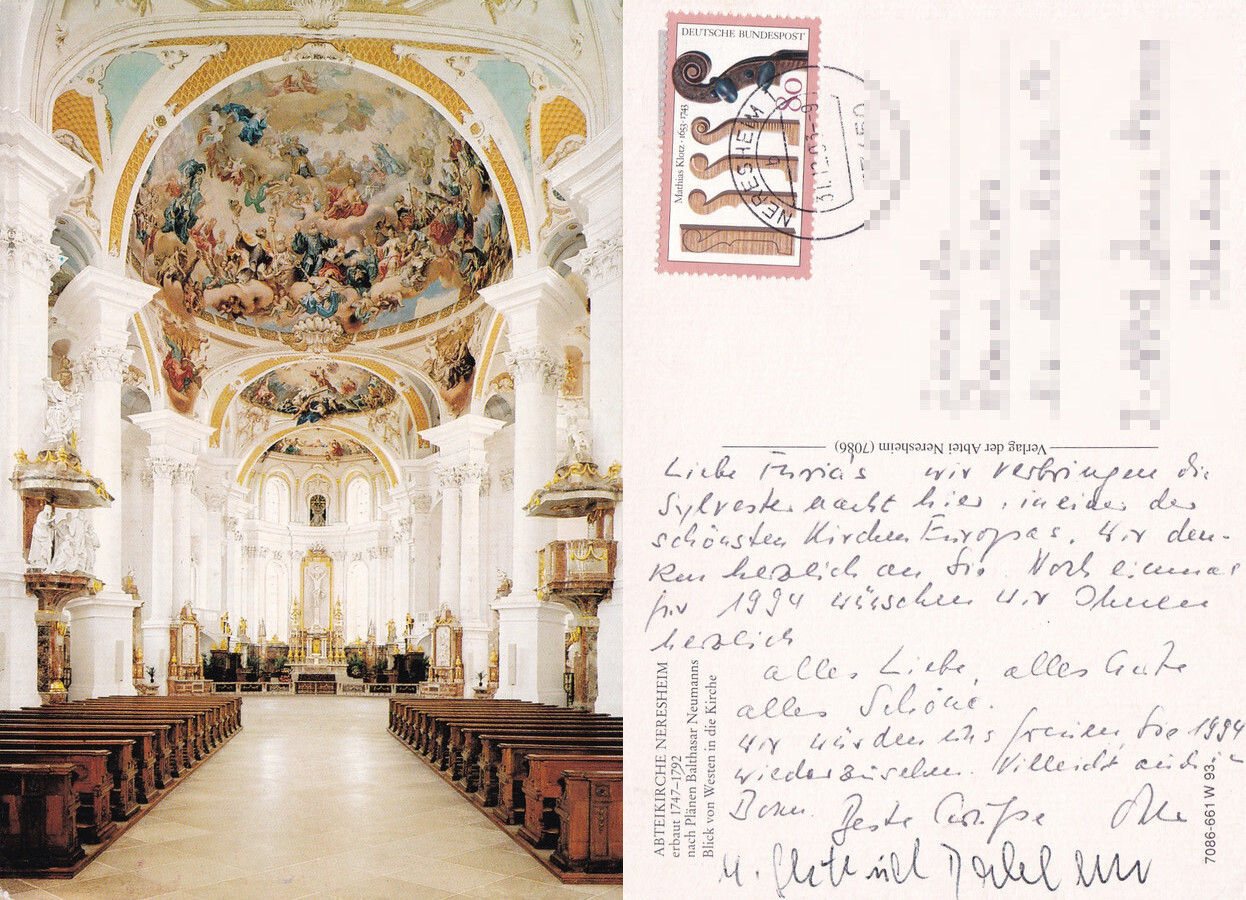 DEUTSCHE BUNDESPOST
80
Mathias Klotz · 1653-1743
NERESHEIM
31.12.93-9
Verlag der Abtei Neresheim (7086)
Liebe wir verbringen die
Sylvesternacht hier, in einer der
schönsten Kirchen Europas. Wir den-
ken herzlich an Sie. Noch einmal
für 1994 wünschen wir Ihnen
herzlich
alles Liebe, alles Gute
alles Schöne.
Wir würden uns freuen Sie 1994
wiederzusehen. Villeicht auch in
Bonn. Beste Grüße
ABTEIKIRCHE NERESHEIM
erbaut 1747–1792
nach Plänen Balthasar Neumanns
Blick von Westen in die Kirche
7086-661 W 93